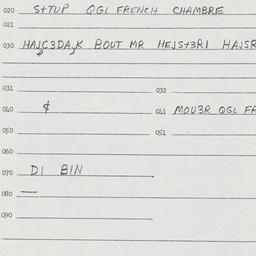 020 S+TUP QGL FRENCH CHAMBRE
021
030 HAJC3DA,K BOUT MR HEJS+3RI HAJSR
031 032
040 ¢ 041 MOU3R QGL FR
050 051
060
070 DI BIN
080 —
090